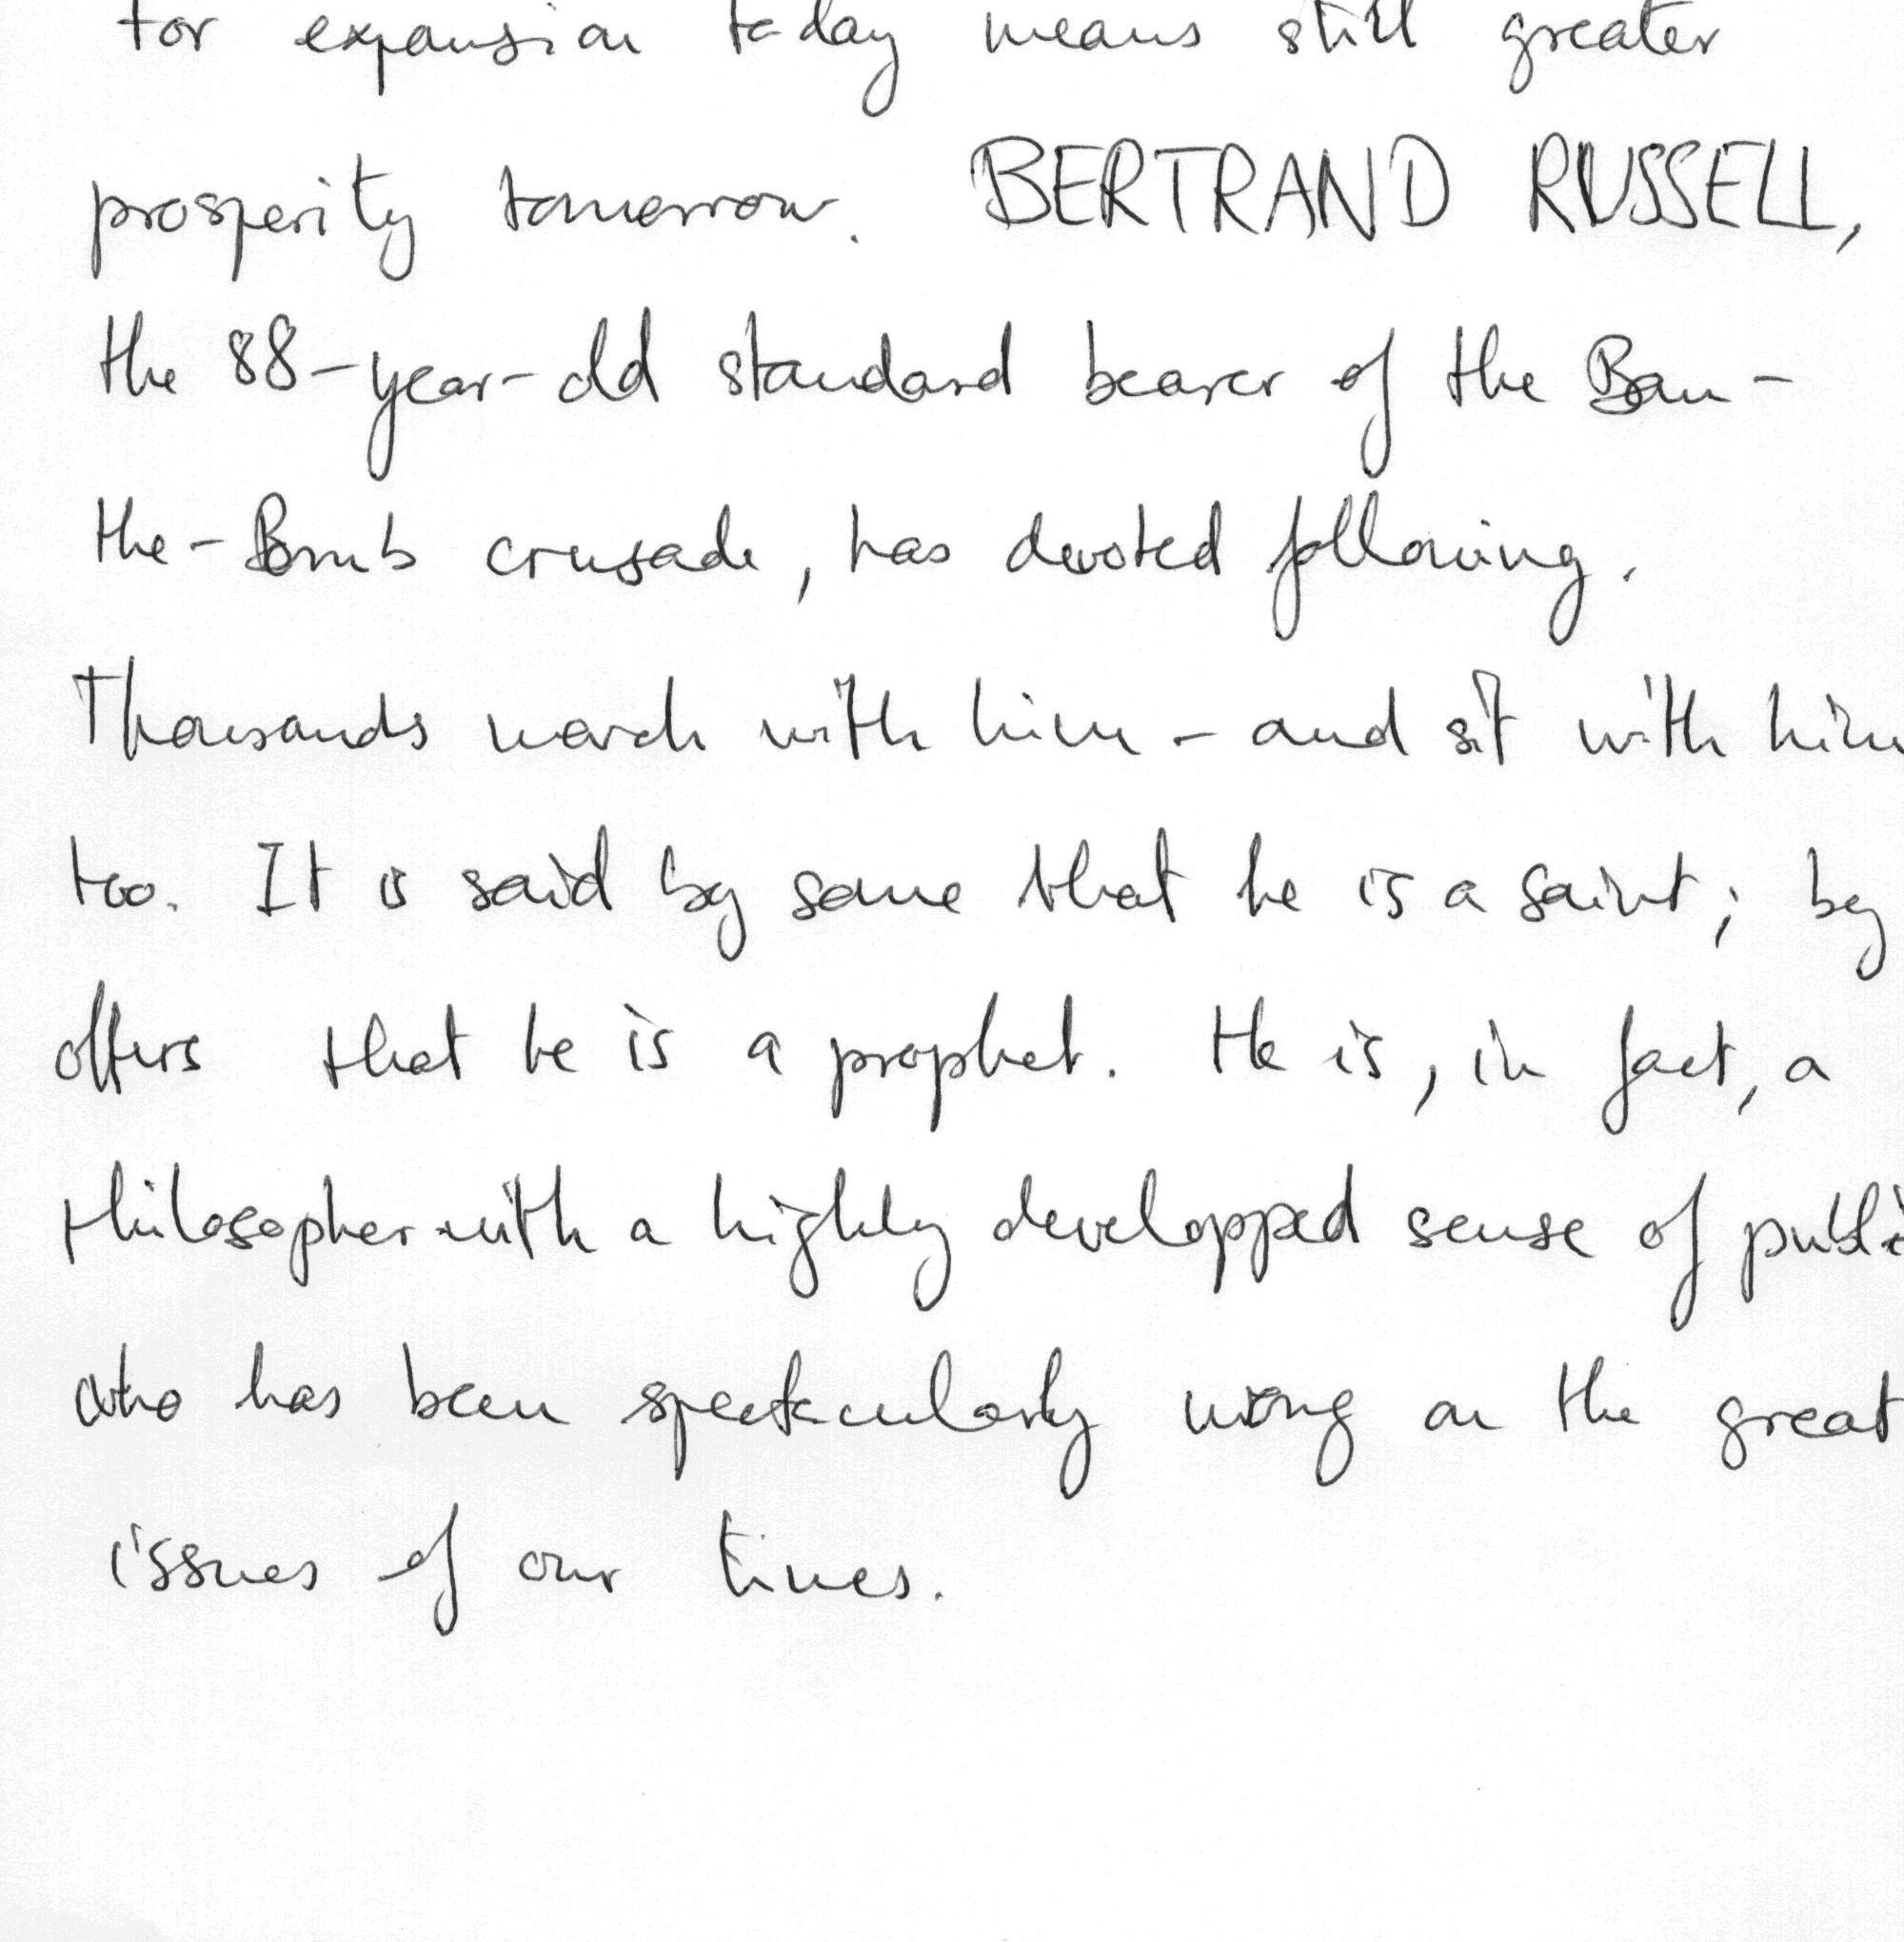 For expansion today means still greater
prosperity tomorrow. BERTRAND RUSSELL,
the 88-year-old standard bearer of the Ban-
the-Bomb crusade, has devoted following.
Thousands march with him - and sit with him
too. It is said by some that he is a saint; by
others that he is a prophet. He is, in fact, a
philosopher with a highly developped sense of publi
who has been spectacularly wrong on the great
issues of our times.